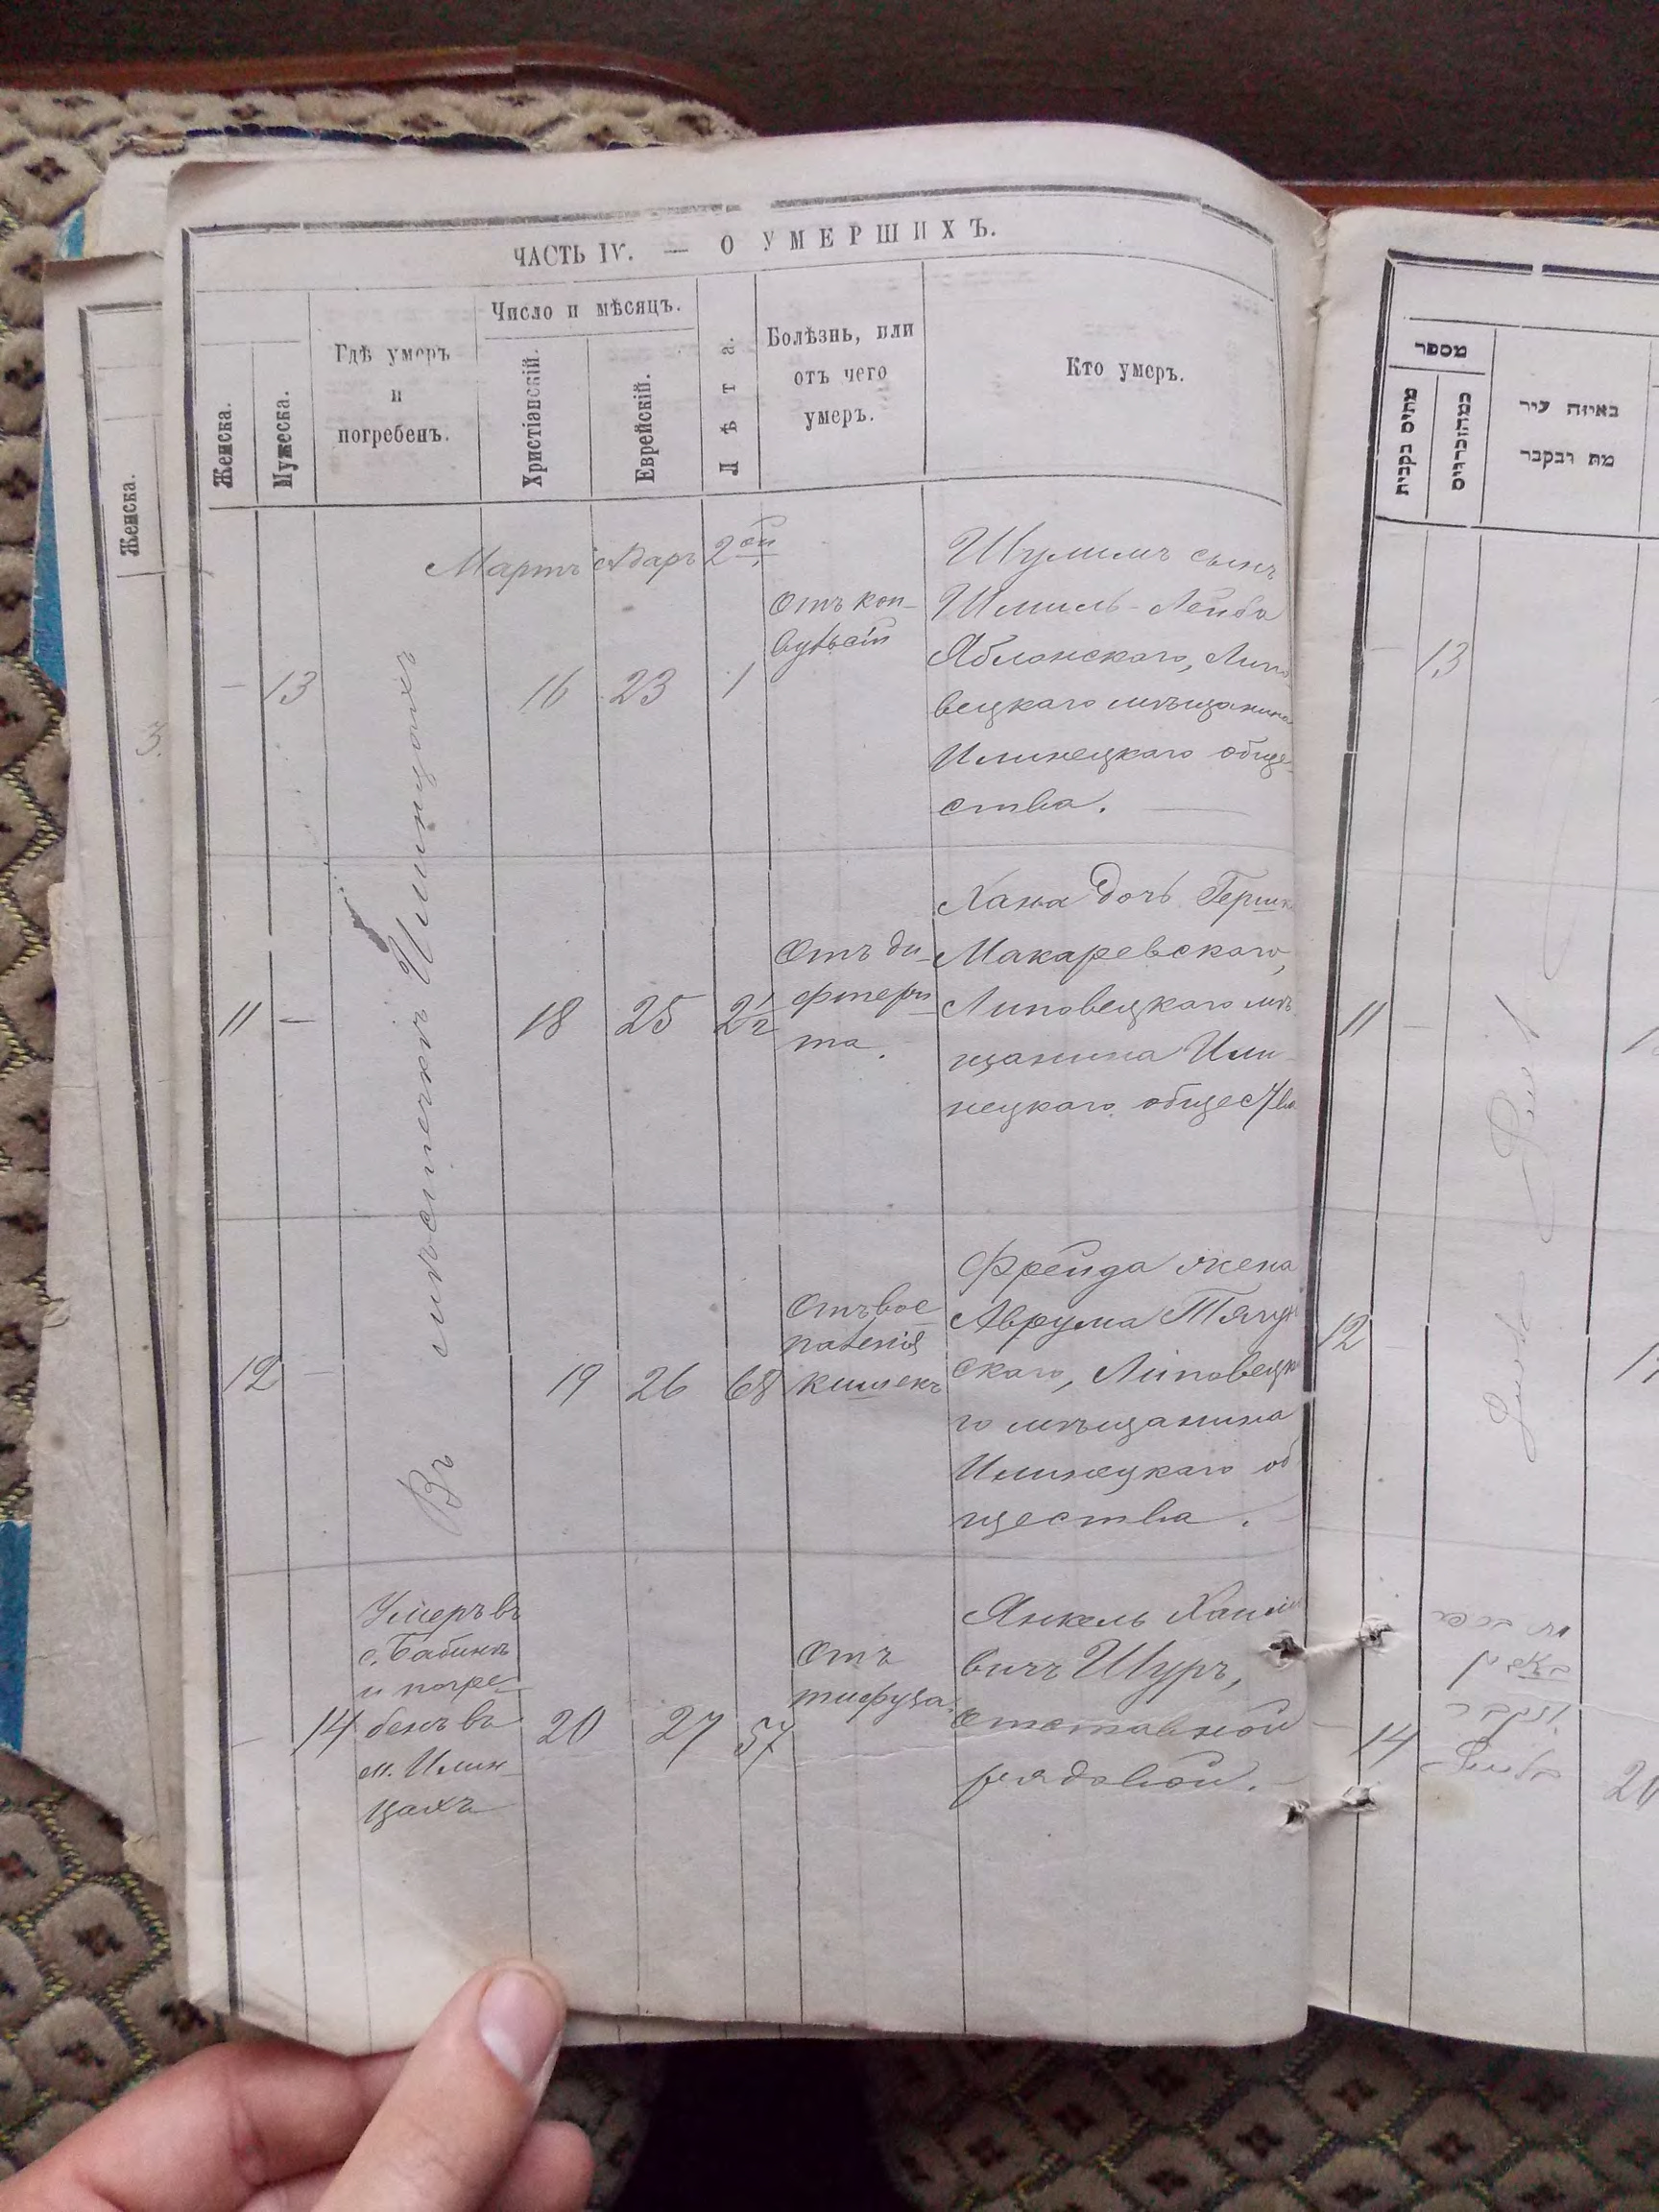 ЧАСТЬ IV. — О УМЕРШИХЪ.
Женска.
Мужеска.
Гдѣ умеръ
и
погребенъ.
Число и мѣсяцъ.
Христіанскій.
Еврейскій.
Лѣта.
Болѣзнь, или
отъ чего
умеръ.
Кто умеръ.
Мартъ Адаръ 2ой
Въ мѣстечкѣ Илинцахъ
— 13 16 23 1
Отъ кон-
вульсій
Шулимъ сынъ
Шмиль-Лейба
Яблонскаго, Липо
вецкаго мѣщанина
Илинецкаго обще-
ства.
11 — 18 25 2½
Отъ ди-
фтери
та.
Хана дочь Гершк
Макаревскаго,
Липовецкаго мѣ
щанина Или-
нецкаго общества
12 — 19 26 68
Отъ вос
паленія
кишекъ
Фрейда жена
Аврума
скаго, Липовецка
го мѣщанина
Илинецкаго об
щества.
— 14
Умеръ въ
с. Бабинѣ
и погре-
бенъ въ
м. Илин
цахъ
20 27 57
Отъ
тифуза.
Янкель Хаимо
вичъ Шуръ,
отставной
рядовой.
Женска.
מספר
באיזה עיר
מת ונקבר
13
11
12
14
20